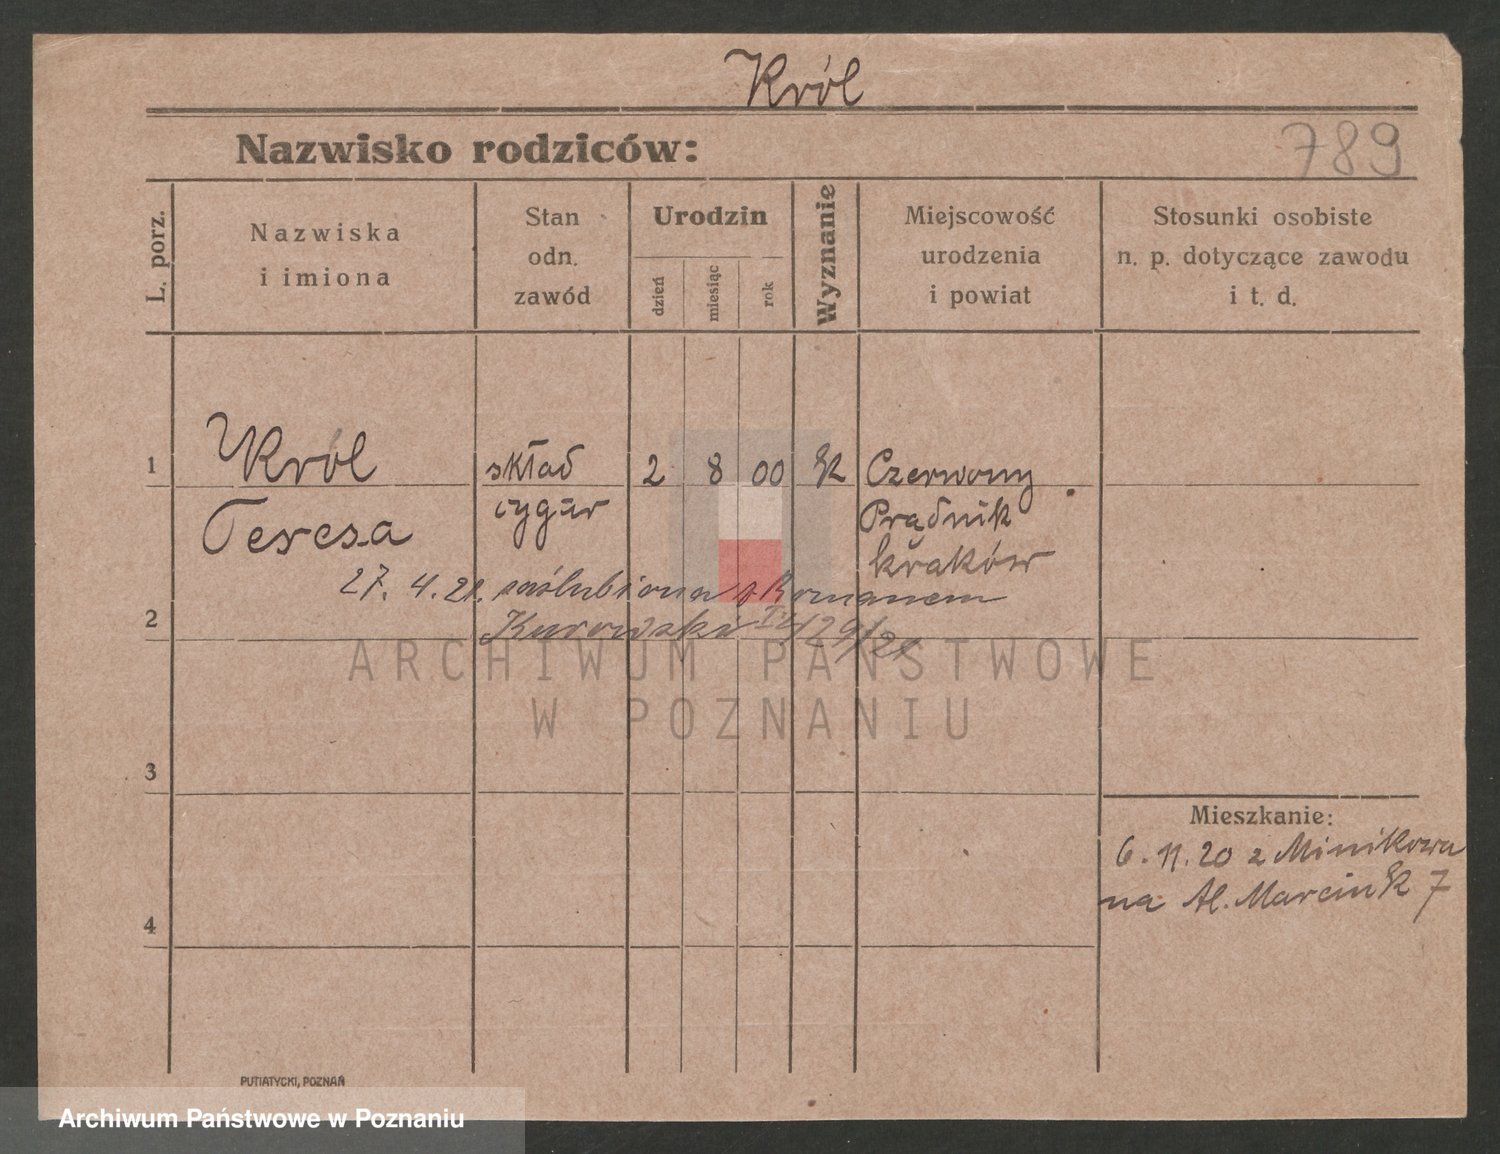 Król
Nazwisko rodziców:
789
L. porz.
Nazwiska
i imiona
Stan
odn.
zawód
Urodzin
dzień
miesiąc
rok
Wyznanie
Miejscowość
urodzenia
i powiat
Stosunki osobiste
n. p. dotyczące zawodu
i t. d.
1
Król
skład
2 8 00
Czerwony
Teresa
cygar
Prądnik
kraków
27. 4. 21. zaślubiona z Romanem
2
Kurowski IV/29/21
ARCHIWUM PAŃSTWOWE
W POZNANIU
3
Mieszkanie:
6. 11. 20 z Minikowa
na Al. Marcink 7
4
PUTIATYCKI, POZNAŃ
Archiwum Państwowe w Poznaniu